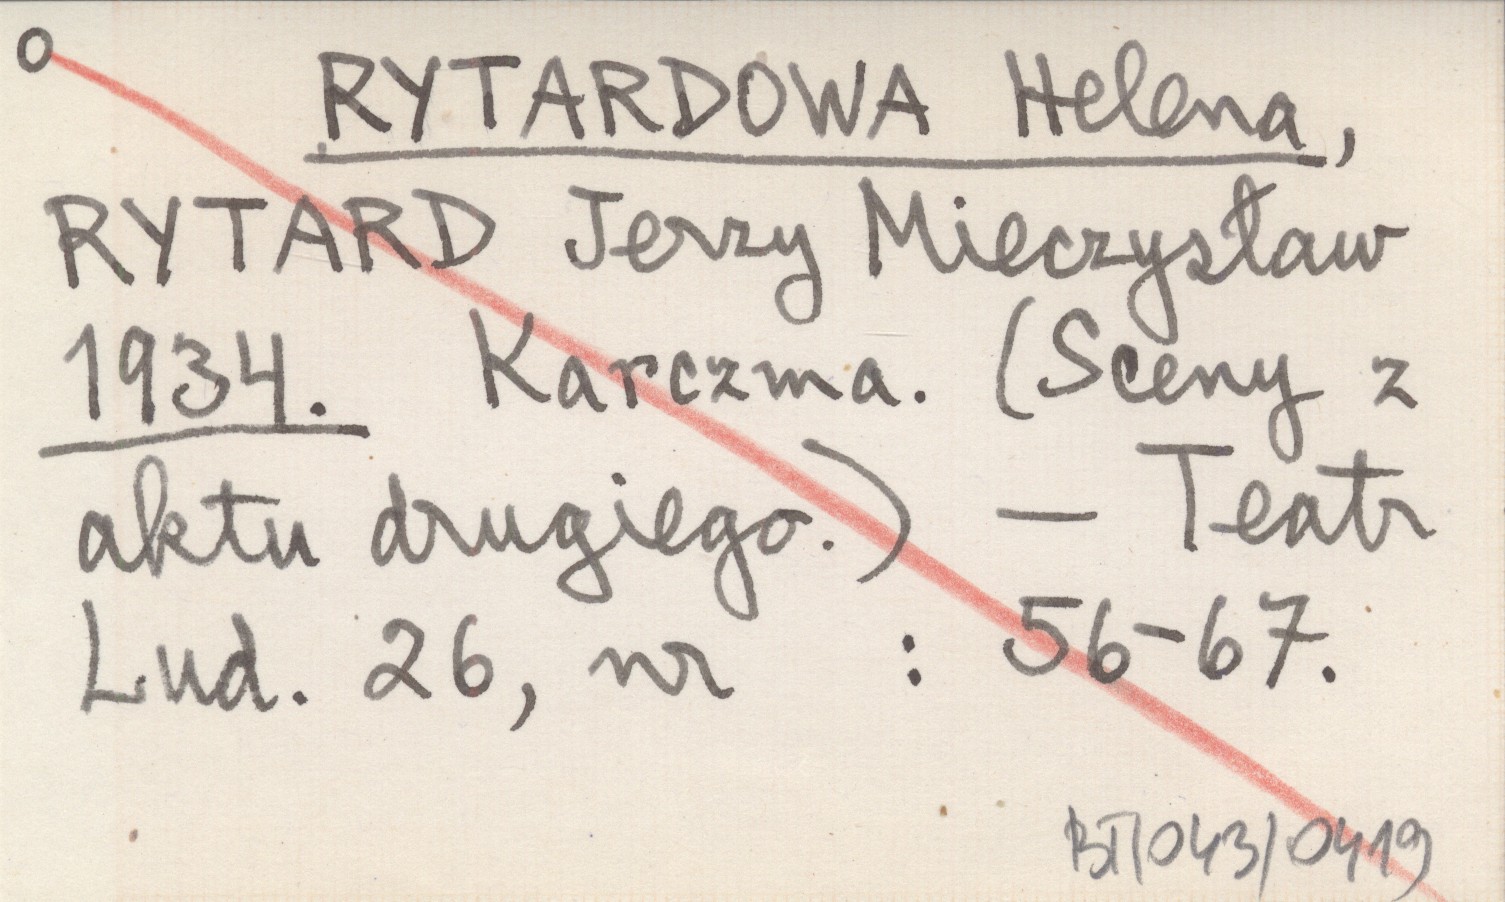 O RYTARDOWA Helena,
RYTARD Jerzy Mieczysław
1934. Karczma. (Sceny z
aktu drugiego.) — Teatr
Lud. 26, nr : 56-67.
BT/043/0419